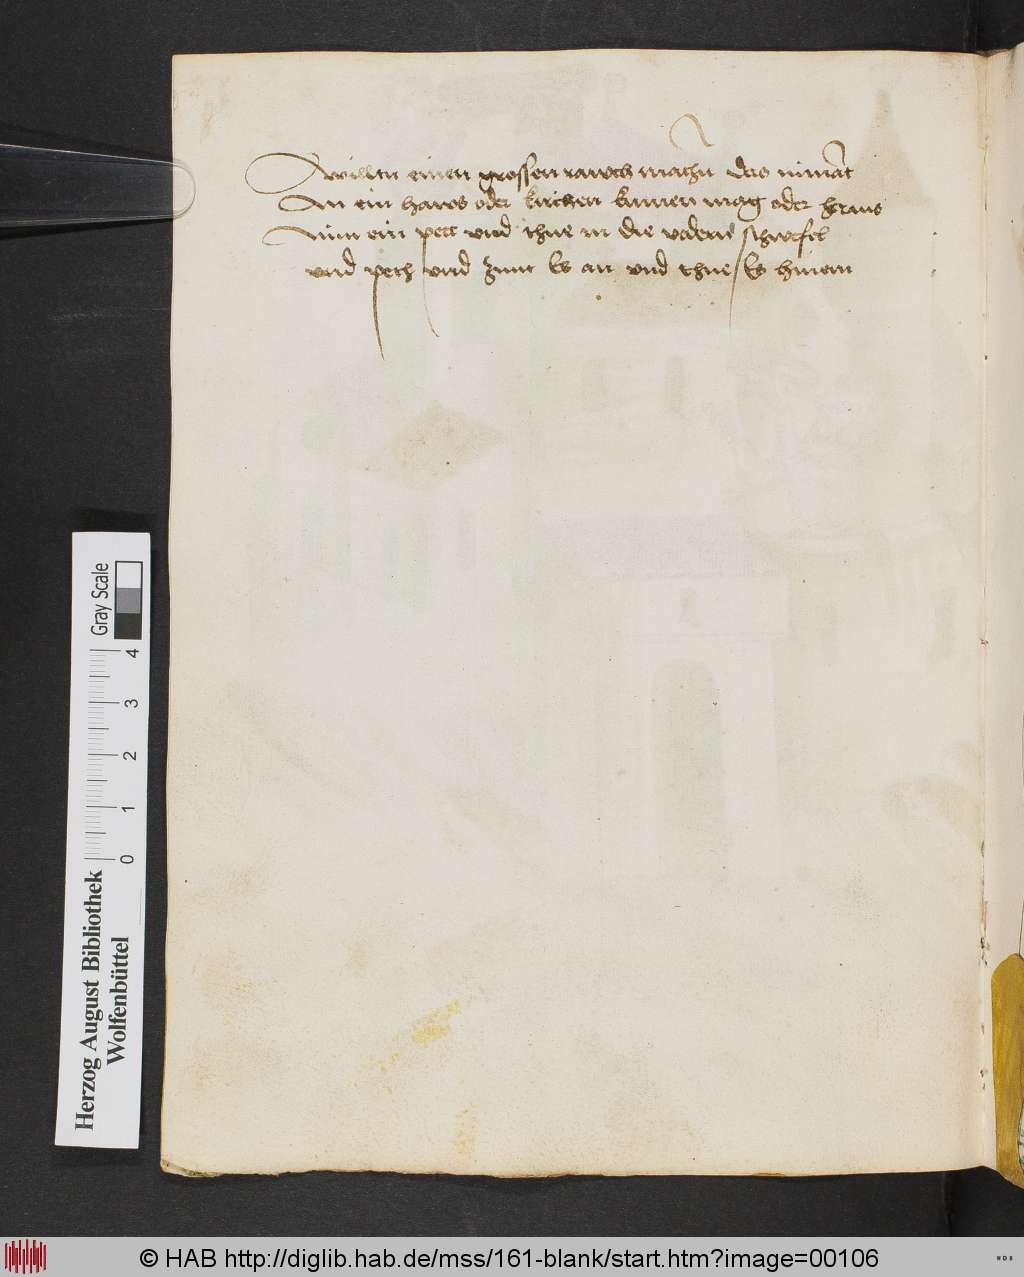 Wiltu einen grossen rawch machn das nimāt
In ein haws oder kirchen kumen mag oder heraus
Nim ein pett vnd thue in die vedern schwefel
vnd pech vnd zunt es an vnd thue es hinein
Gray Scale
0 1 2 3 4
Herzog August Bibliothek
Wolfenbüttel
© HAB http://diglib.hab.de/mss/161-blank/start.htm?image=00106